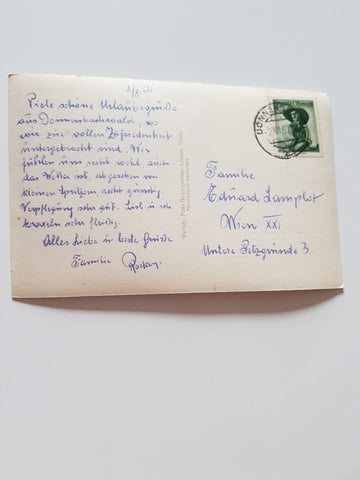 Viele schöne Urlaubsgrüße
aus Donnersbachwald, wo
wir zur vollen Zufriedenheit
untergebracht sind. Wir
fühlen uns recht wohl auch
das Wetter ist, abgesehen von
kleinen Spritzern recht günstig
Verpflegung sehr gut. Lisl u. ich
kraxeln sehr fleißig.
Alles Liebe u. beste Grüße
Familie
Familie
Eduard Lamplot
Wien XXI
Untere Jetzgründe 3
Verlag: Foto Baumgartner, Liezen,
Nachdruck verboten